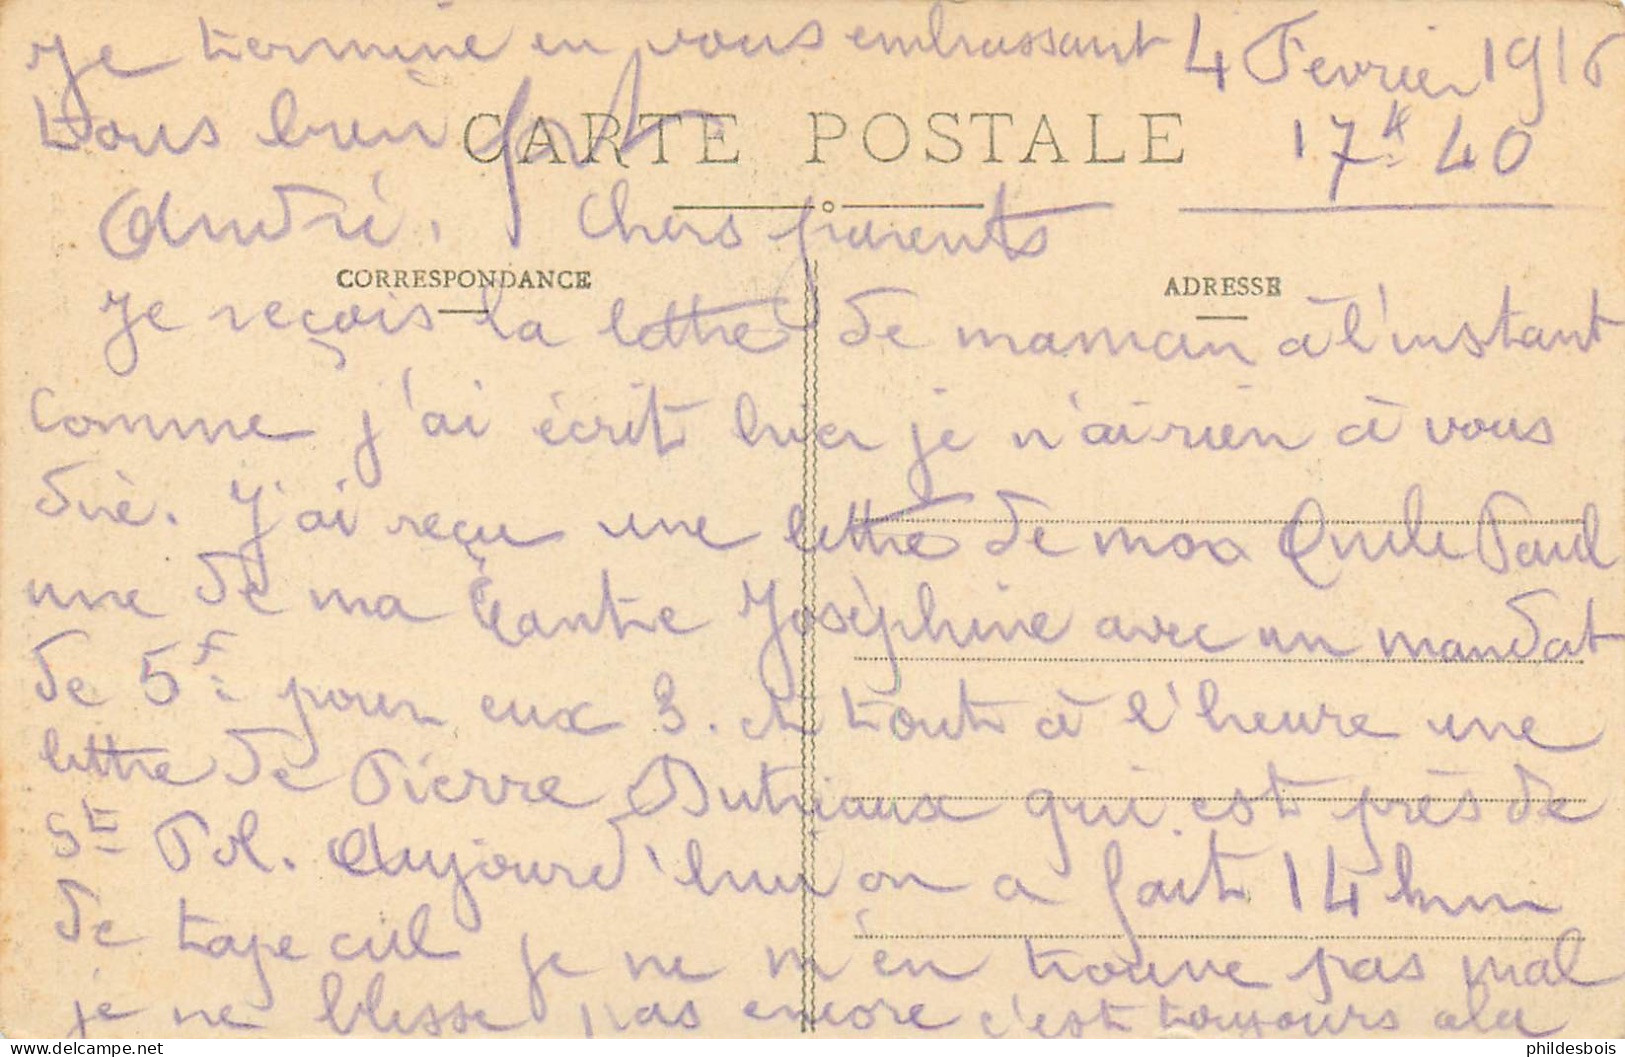 Je termine en vous embrassant 4 Fevrier 1916
tous bien fort
CARTE POSTALE
17h 40
André. Chers parents
CORRESPONDANCE
ADRESSE
Je reçois la lettre de maman à l'instant
comme j'ai écrit hier je n'ai rien à vous
dire. J'ai reçu une lettre de mon Oncle Paul
une de ma tante Joséphine avec un mandat
de 5f pour eux 3. et tout à l'heure une
lettre de Pierre Dutriaux qui est près de
St Pol. Aujourd'hui on a fait 14 km
de tape cul je ne m'en trouve pas mal
je ne blesse pas encore c'est toujours ala
phildesbois